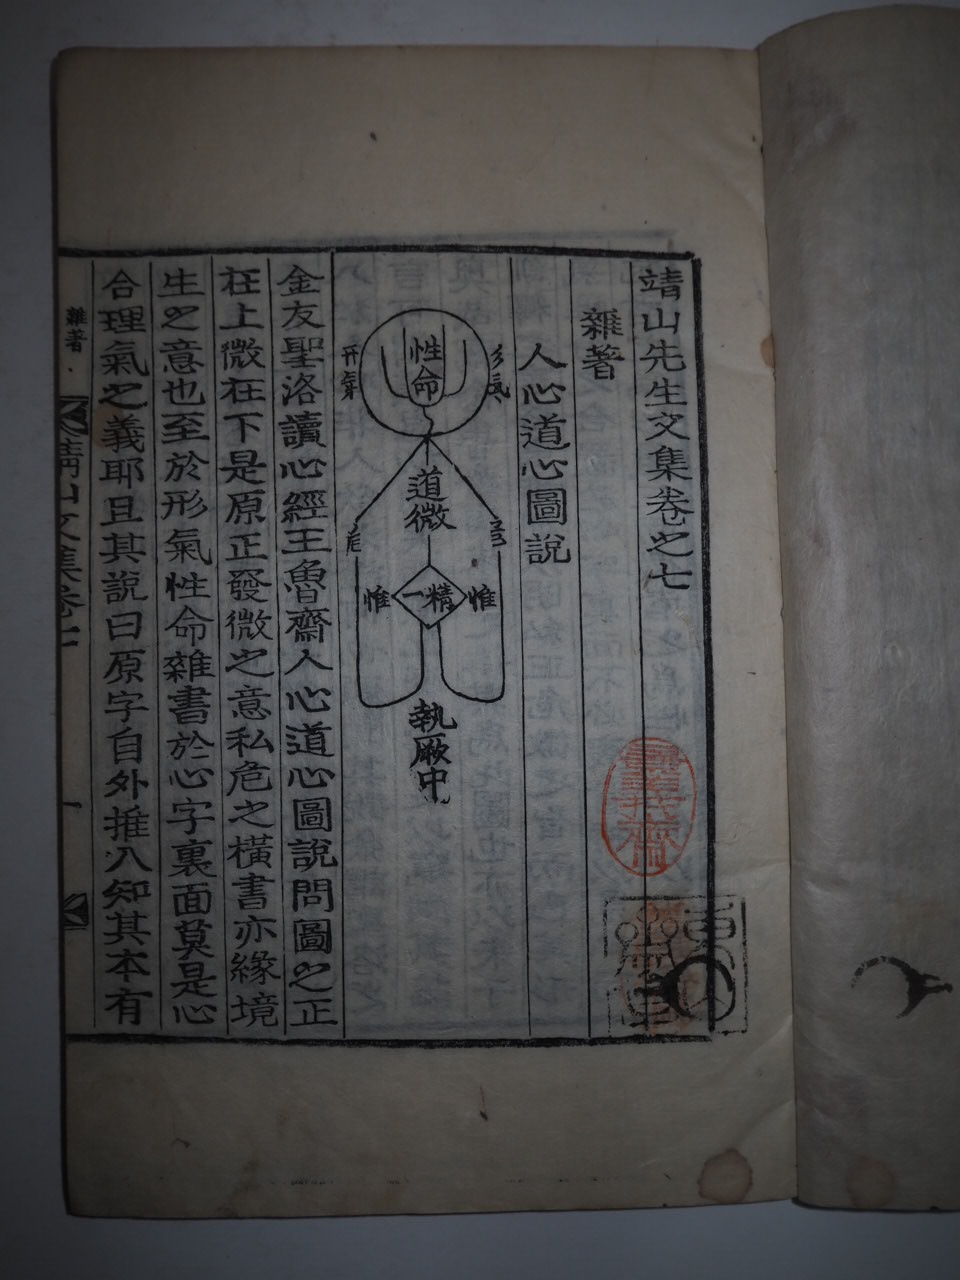 靖山先生文集卷之七
雜著
人心道心圖說
性命
形氣
形氣
道微
危
惟
精一
惟
執厥中
金友聖洛讀心經王魯齋人心道心圖說問圖之正
在上微在下是原正發微之意私危之橫書亦緣境
生之意也至於形氣性命雜書於心字裏面莫是心
合理氣之義耶且其說曰原字自外推入知其本有
雜著
靖山文集卷七
一